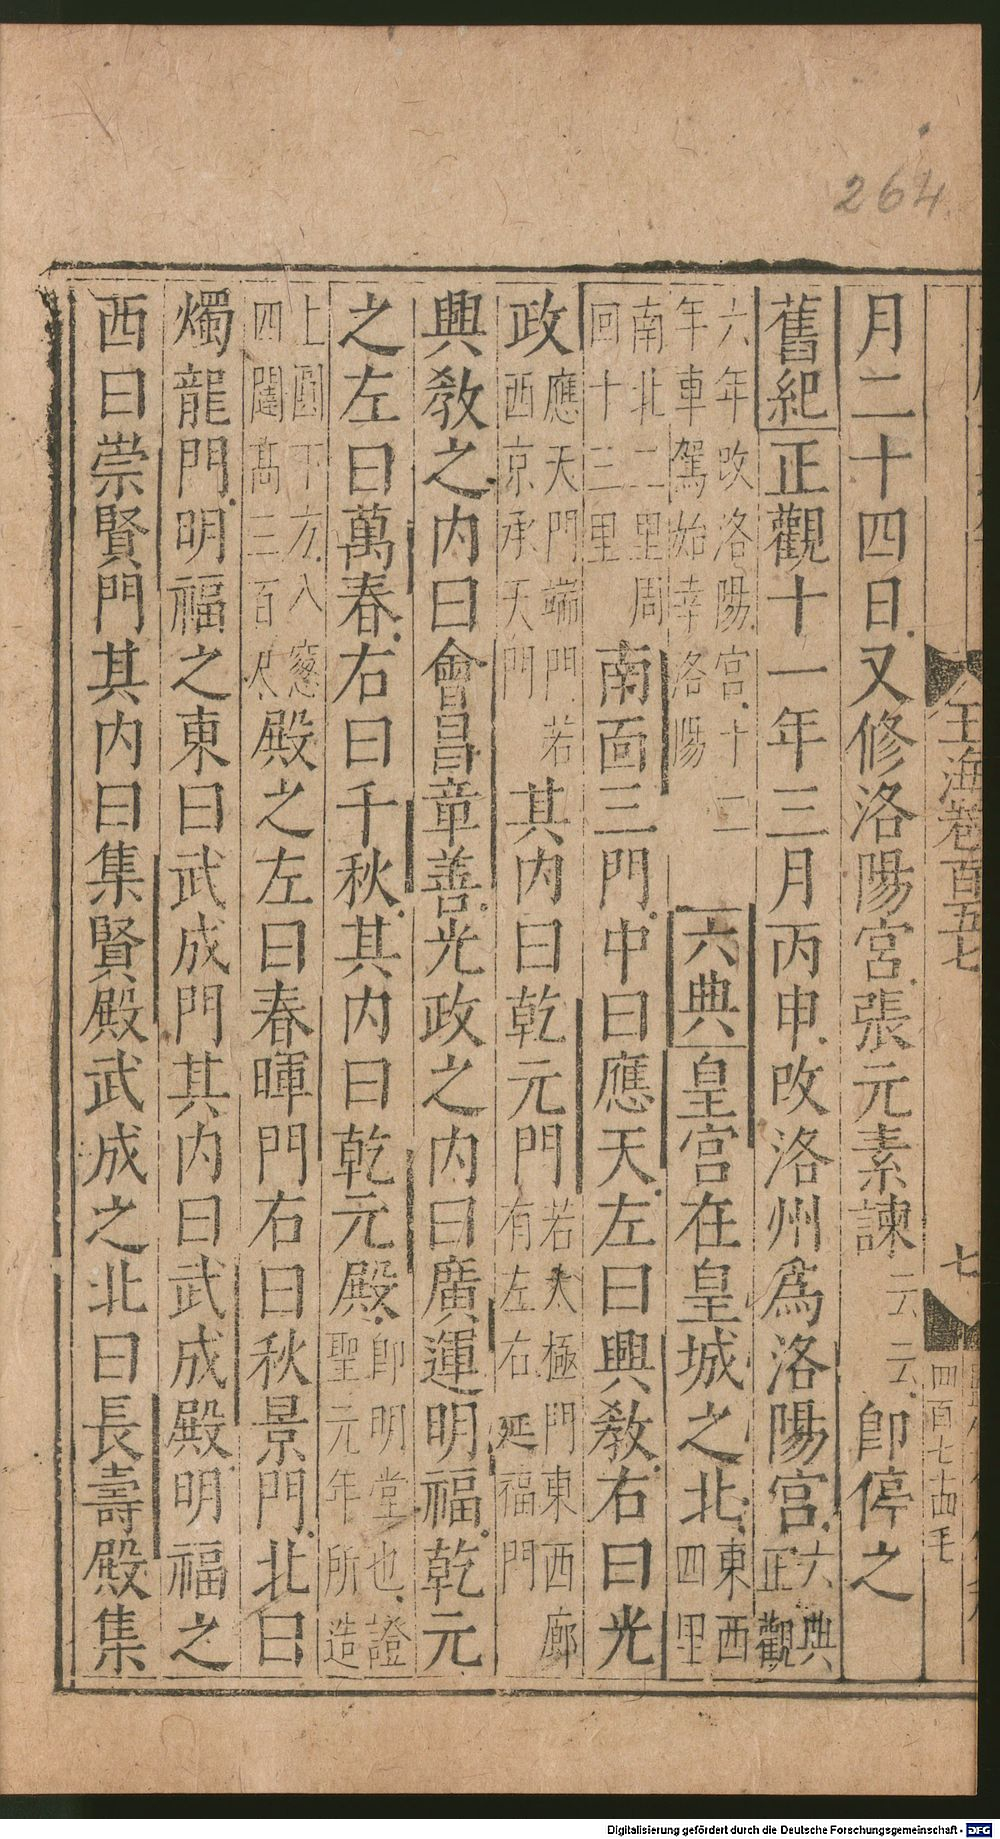 264
玉海卷百五七
七
月二十四日又修洛陽宮張元素諫云云即停之
舊紀正觀十一年三月丙申改洛州爲洛陽宮六典正觀
六年改洛陽宮十二年車駕始幸洛陽六典皇宮在皇城之北東西四里
南北二里周回十三里南面三門中曰應天左曰興敎右曰光
政應天門端門若西京承天門其内曰乾元門若太極門東西廊有左右延福門
興敎之内曰會昌章善光政之内曰廣運明福乾元
之左曰萬春右曰千秋其内曰乾元殿即明堂也證聖元年所造
上圓下方八窻四闥高三百尺殿之左曰春暉門右曰秋景門北曰
燭龍門明福之東曰武成門其内曰武成殿明福之
西曰崇賢門其内曰集賢殿武成之北曰長壽殿集
Digitalisierung gefördert durch die Deutsche Forschungsgemeinschaft - DFG